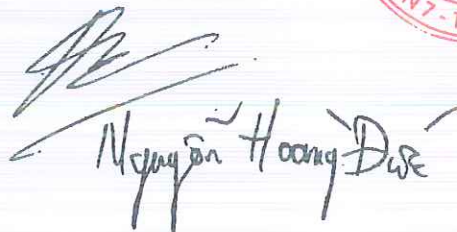 Nguyễn Hoàng Đức